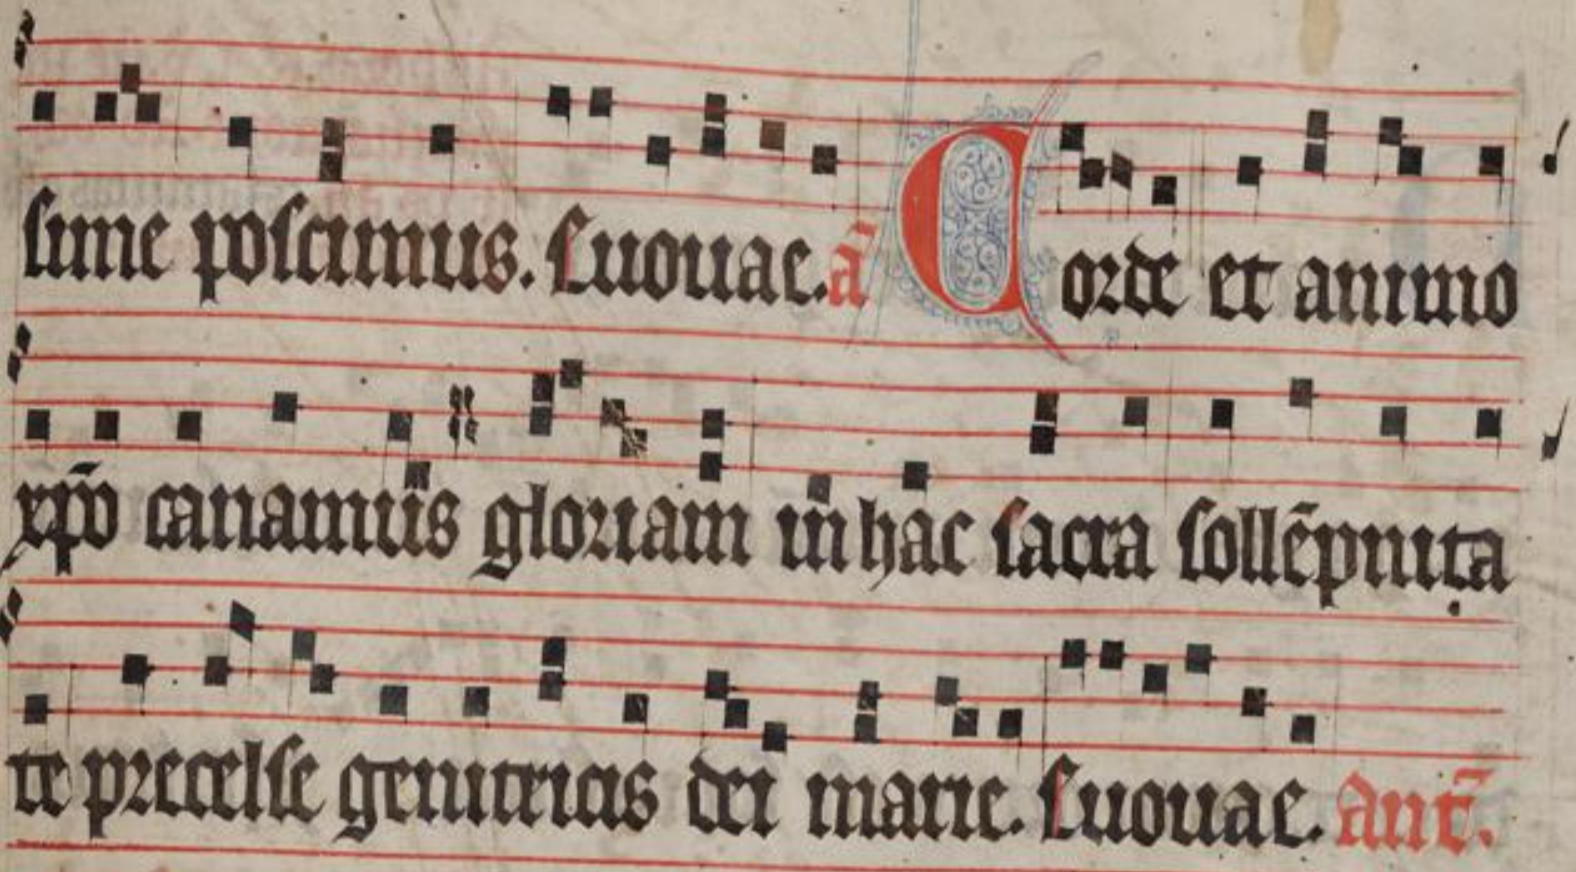 sume poscimus. Euouae. a Corde et animo
xp̄o canamus gloriam in hac sacra sollēpnita
te precelse genitricis dei marie. Euouae. Ant̄.